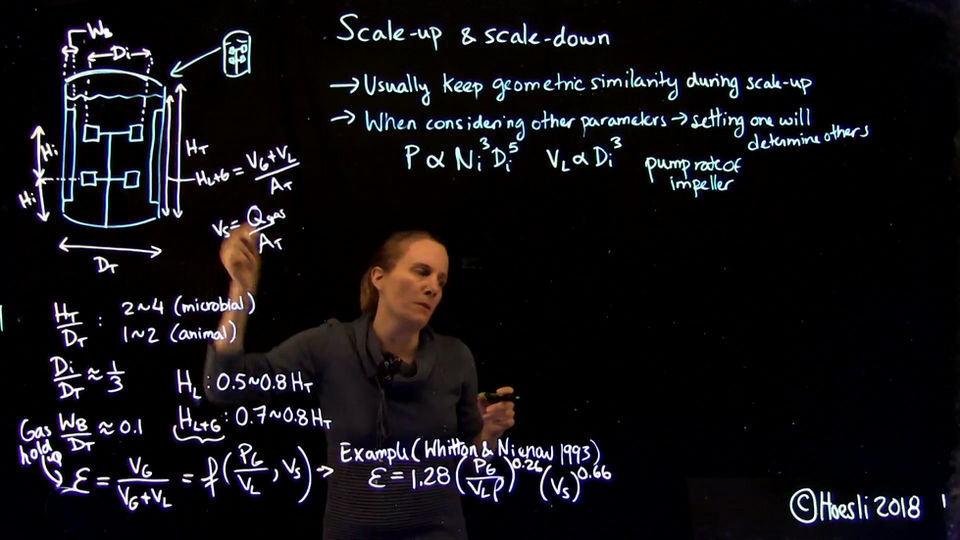 Scale-up & scale-down
→ Usually keep geometric similarity during scale-up
→ When considering other parameters → setting one will
determine others
P ∝ Ni³Di⁵ VL ∝ Di³ pump rate of
impeller
WB
Di
Hi
Hi
HT
HL+G = (VG+VL)/AT
vs = Qgas/AT
DT
HT/DT : 2~4 (microbial)
1~2 (animal)
Di/DT ≈ 1/3
HL : 0.5~0.8 HT
WB/DT ≈ 0.1
HL+G : 0.7~0.8 HT
Gas
hold
up
ε = VG/(VG+VL) = f(PG/VL, vs) →
Example (Whitton & Nienow 1993)
ε = 1.28 (PG/VLρ)^0.26 (vs)^0.66
© Hoesli 2018